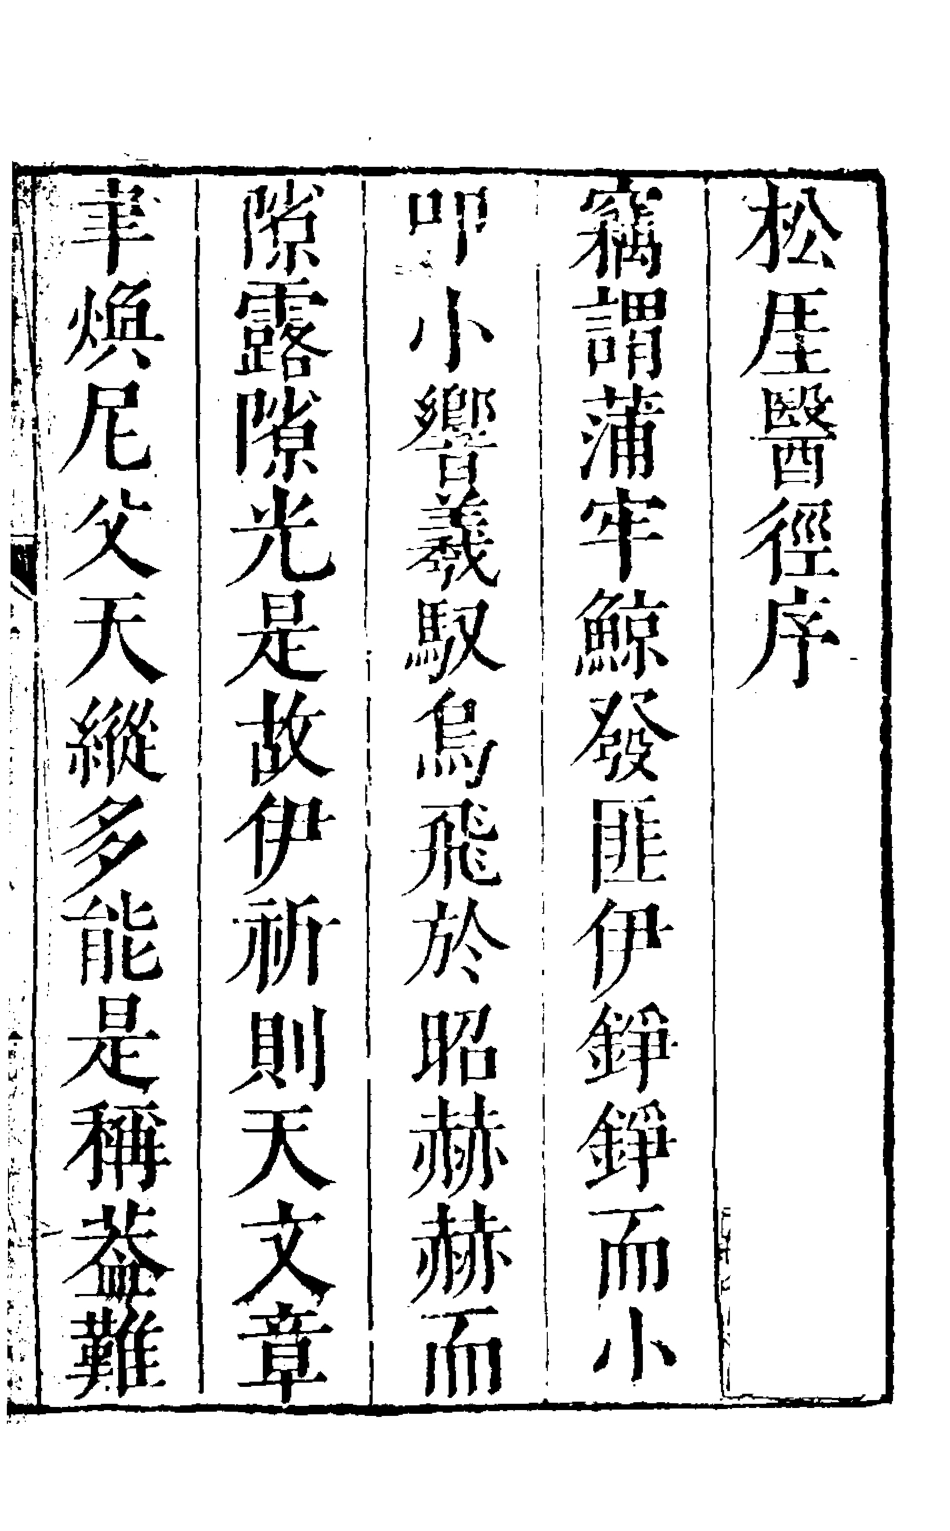 松厓醫徑序
竊謂蒲牢鯨發匪伊錚錚而小
叩小響羲馭烏飛於昭赫赫而
隙露隙光是故伊祈則天文章
聿煥尼父天縱多能是稱葢難